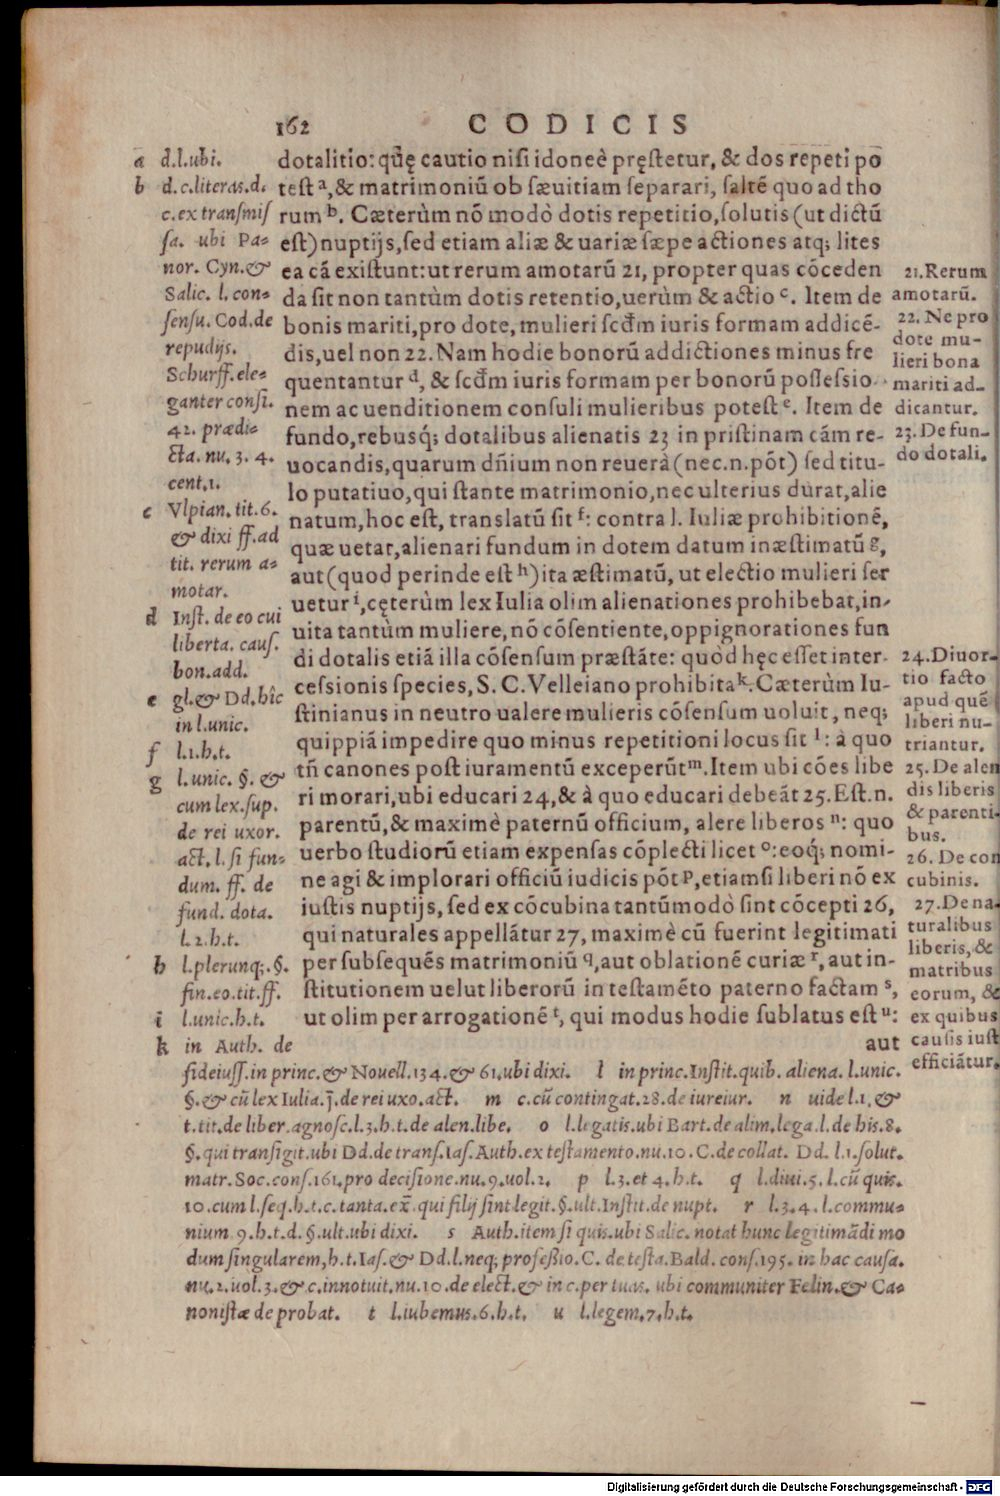 162 CODICIS
dotalitio: quę cautio nisi idoneè pręstetur, & dos repeti po
test ᵃ, & matrimoniũ ob sæuitiam separari, saltẽ quo ad tho
rum ᵇ. Cæterùm nõ modò dotis repetitio, solutis (ut dictũ
est) nuptijs, sed etiam aliæ & uariæ sæpe actiones atq; lites
ea cã existunt: ut rerum amotarũ 21, propter quas cõceden
da sit non tantùm dotis retentio, uerùm & actio ᶜ. Item de
bonis mariti, pro dote, mulieri scđm iuris formam addicẽ-
dis, uel non 22. Nam hodie bonorũ addictiones minus fre
quentantur ᵈ, & scđm iuris formam per bonorũ possessio
nem ac uenditionem consuli mulieribus potest ᵉ. Item de
fundo, rebusq́; dotalibus alienatis 23 in pristinam cãm re-
uocandis, quarum dñium non reuerà (nec.n.põt) sed titu-
lo putatiuo, qui stante matrimonio, nec ulterius durat, alie
natum, hoc est, translatũ sit ᶠ: contra l. Iuliæ prohibitionẽ,
quæ uetat, alienari fundum in dotem datum inæstimatũ ᵍ,
aut (quod perinde est ʰ) ita æstimatũ, ut electio mulieri ser
uetur ⁱ, cęterùm lex Iulia olim alienationes prohibebat, in-
uita tantùm muliere, nõ cõsentiente, oppignorationes fun
di dotalis etiã illa cõsensum præstãte: quòd hęc esset inter-
cessionis species, S. C. Velleiano prohibita ᵏ. Cæterùm Iu-
stinianus in neutro ualere mulieris cõsensum uoluit, neq;
quippiã impedire quo minus repetitioni locus sit ˡ: à quo
tñ canones post iuramentũ exceperũt ᵐ. Item ubi cões libe
ri morari, ubi educari 24, & à quo educari debeãt 25. Est.n.
parentũ, & maximè paternũ officium, alere liberos ⁿ: quo
uerbo studiorũ etiam expensas cõplecti licet ᵒ: eoq́; nomi-
ne agi & implorari officiũ iudicis põt ᵖ, etiamsi liberi nõ ex
iustis nuptijs, sed ex cõcubina tantũmodò sint cõcepti 26,
qui naturales appellãtur 27, maximè cũ fuerint legitimati
per subsequẽs matrimoniũ q, aut oblationẽ curiæ ʳ, aut in-
stitutionem uelut liberorũ in testamẽto paterno factam ˢ,
ut olim per arrogationẽ ᵗ, qui modus hodie sublatus est ᵘ:
aut
a d.l.ubi.
b d.c.literas.d.
c.ex transmis
sa. ubi Pa-
nor. Cyn. &
Salic. l. con-
sensu. Cod. de
repudijs.
Schurff. ele-
ganter consi.
42. prædi-
cta. nu. 3. 4.
cent. 1.
c Vlpian. tit. 6.
& dixi ff. ad
tit. rerum a-
motar.
d Inst. de eo cui
liberta. caus.
bon. add.
e gl. & Dd. hîc
in l. unic.
f l.1.h.t.
g l. unic. §. &
cum lex. sup.
de rei uxor.
act. l. si fun-
dum. ff. de
fund. dota.
l.2.h.t.
h l. plerunq;. §.
fin. eo. tit. ff.
i l. unic. h.t.
k in Auth. de
fideiuss. in princ. & Nouell. 134. & 61. ubi dixi. l in princ. Instit. quib. aliena. l. unic.
§. & cũ lex Iulia. j̃. de rei uxo. act. m c. cũ contingat. 28. de iureiur. n uide l.1. &
t. tit. de liber. agnosc. l.3.h.t. de alen. libe. o l. legatis. ubi Bart. de alim. lega. l. de his. 8.
§. qui transigit. ubi Dd. de trans. Ias. Auth. ex testamento. nu. 10. C. de collat. Dd. l.1. solut.
matr. Soc. cons. 161. pro decisione. nu. 9. uol. 2. p l.3. et 4. h.t. q l. diui. 5. l. cũ quis.
10. cum l. seq. h.t.c. tanta. ex̃. qui filij sint legit. §. ult. Instit. de nupt. r l.3.4. l. commu-
nium 9. h.t.d. §. ult. ubi dixi. s Auth. item si quis. ubi Salic. notat hunc legitimãdi mo
dum singularem, h.t. Ias. & Dd. l. neq; professio. C. de testa. Bald. cons. 195. in hac causa.
nu. 2. uol. 3. & c. innotuit. nu. 10. de elect. & in c. per tuas. ubi communiter Felin. & Ca-
nonistæ de probat. t l. iubemus. 6. h.t. u l. legem. 7. h.t.
21. Rerum
amotarũ.
22. Ne pro
dote mu-
lieri bona
mariti ad-
dicantur.
23. De fun-
do dotali.
24. Diuor-
tio facto
apud quẽ
liberi nu-
triantur.
25. De alen
dis liberis
& parenti-
bus.
26. De con
cubinis.
27. De na-
turalibus
liberis, &
matribus
eorum, &
ex quibus
causis iust
efficiãtur.
Digitalisierung gefördert durch die Deutsche Forschungsgemeinschaft - DFG